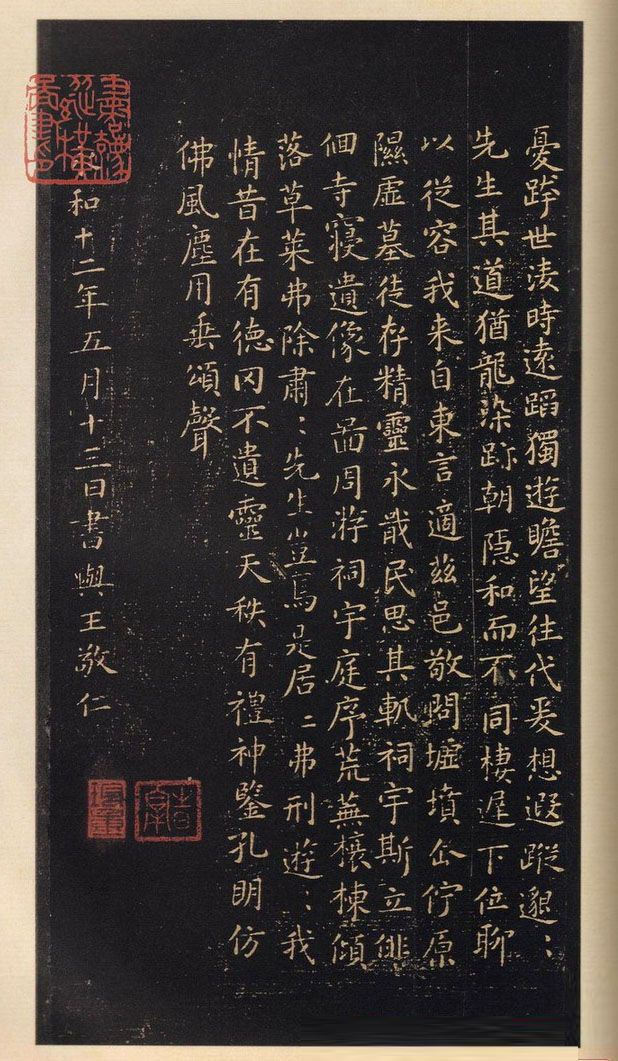 憂跨世淩時遠蹈獨遊瞻望往代爰想遐蹤邈〻
先生其道猶龍染跡朝隠和而不同棲遲下位聊
以從容我来自東言適兹邑敬問墟墳企佇原
隰虛墓徒存精靈永戢民思其軌祠宇斯立俳
佪寺寝遺像在啚周遊祠宇庭序荒蕪榱棟傾
落草莱弗除肅〻先生豈焉是居〻弗刑遊〻我
情昔在有德罔不遺靈天秩有禮神鑒孔明仿
佛風塵用垂頌聲
和十二年五月十三日書與王敬仁